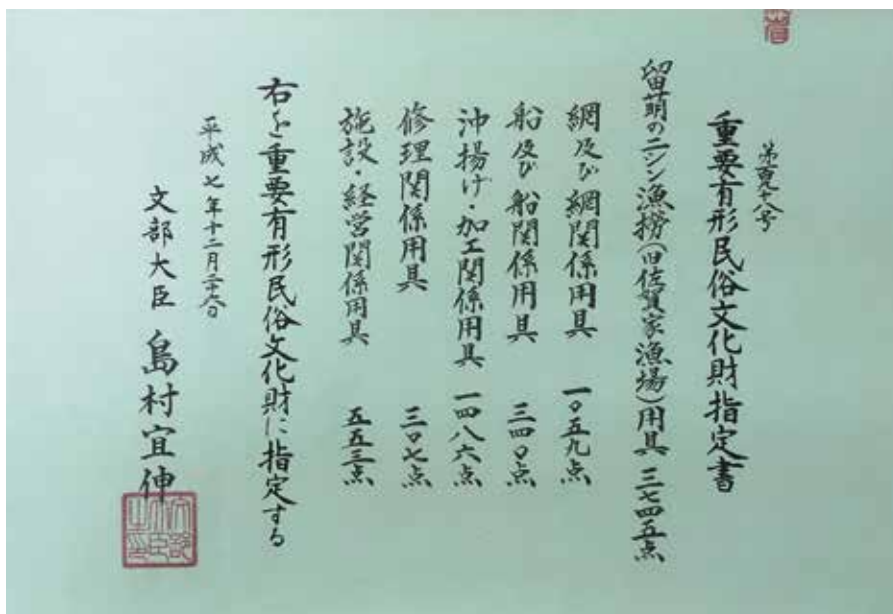 重要有形民俗文化財指定書
留萌のニシン漁撈(旧佐賀家漁場)用具 三七四五点
網及び網関係用具 一〇五九点
船及び船関係用具 三四〇点
沖揚げ・加工関係用具 一四八六点
修理関係用具 三〇七点
施設・経営関係用具 五五三点
右を重要有形民俗文化財に指定する
平成七年十二月二十六日
文部大臣 島村宜伸
文部大臣之印